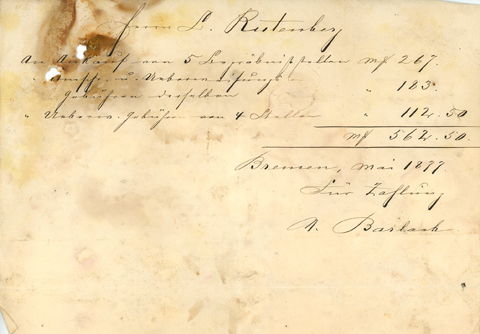 Herrn L. Rutenberg
An Ankauf von 5 Begräbnißstellen Mk 267.
" Umschr. u. Ueberweisungs-
Gebühren derselben " 183.
" Ueberw. Gebühr von 4 Stellen " 112.50
Mk 562.50.
Bremen, Mai 1877
Für Zahlung
Barlach